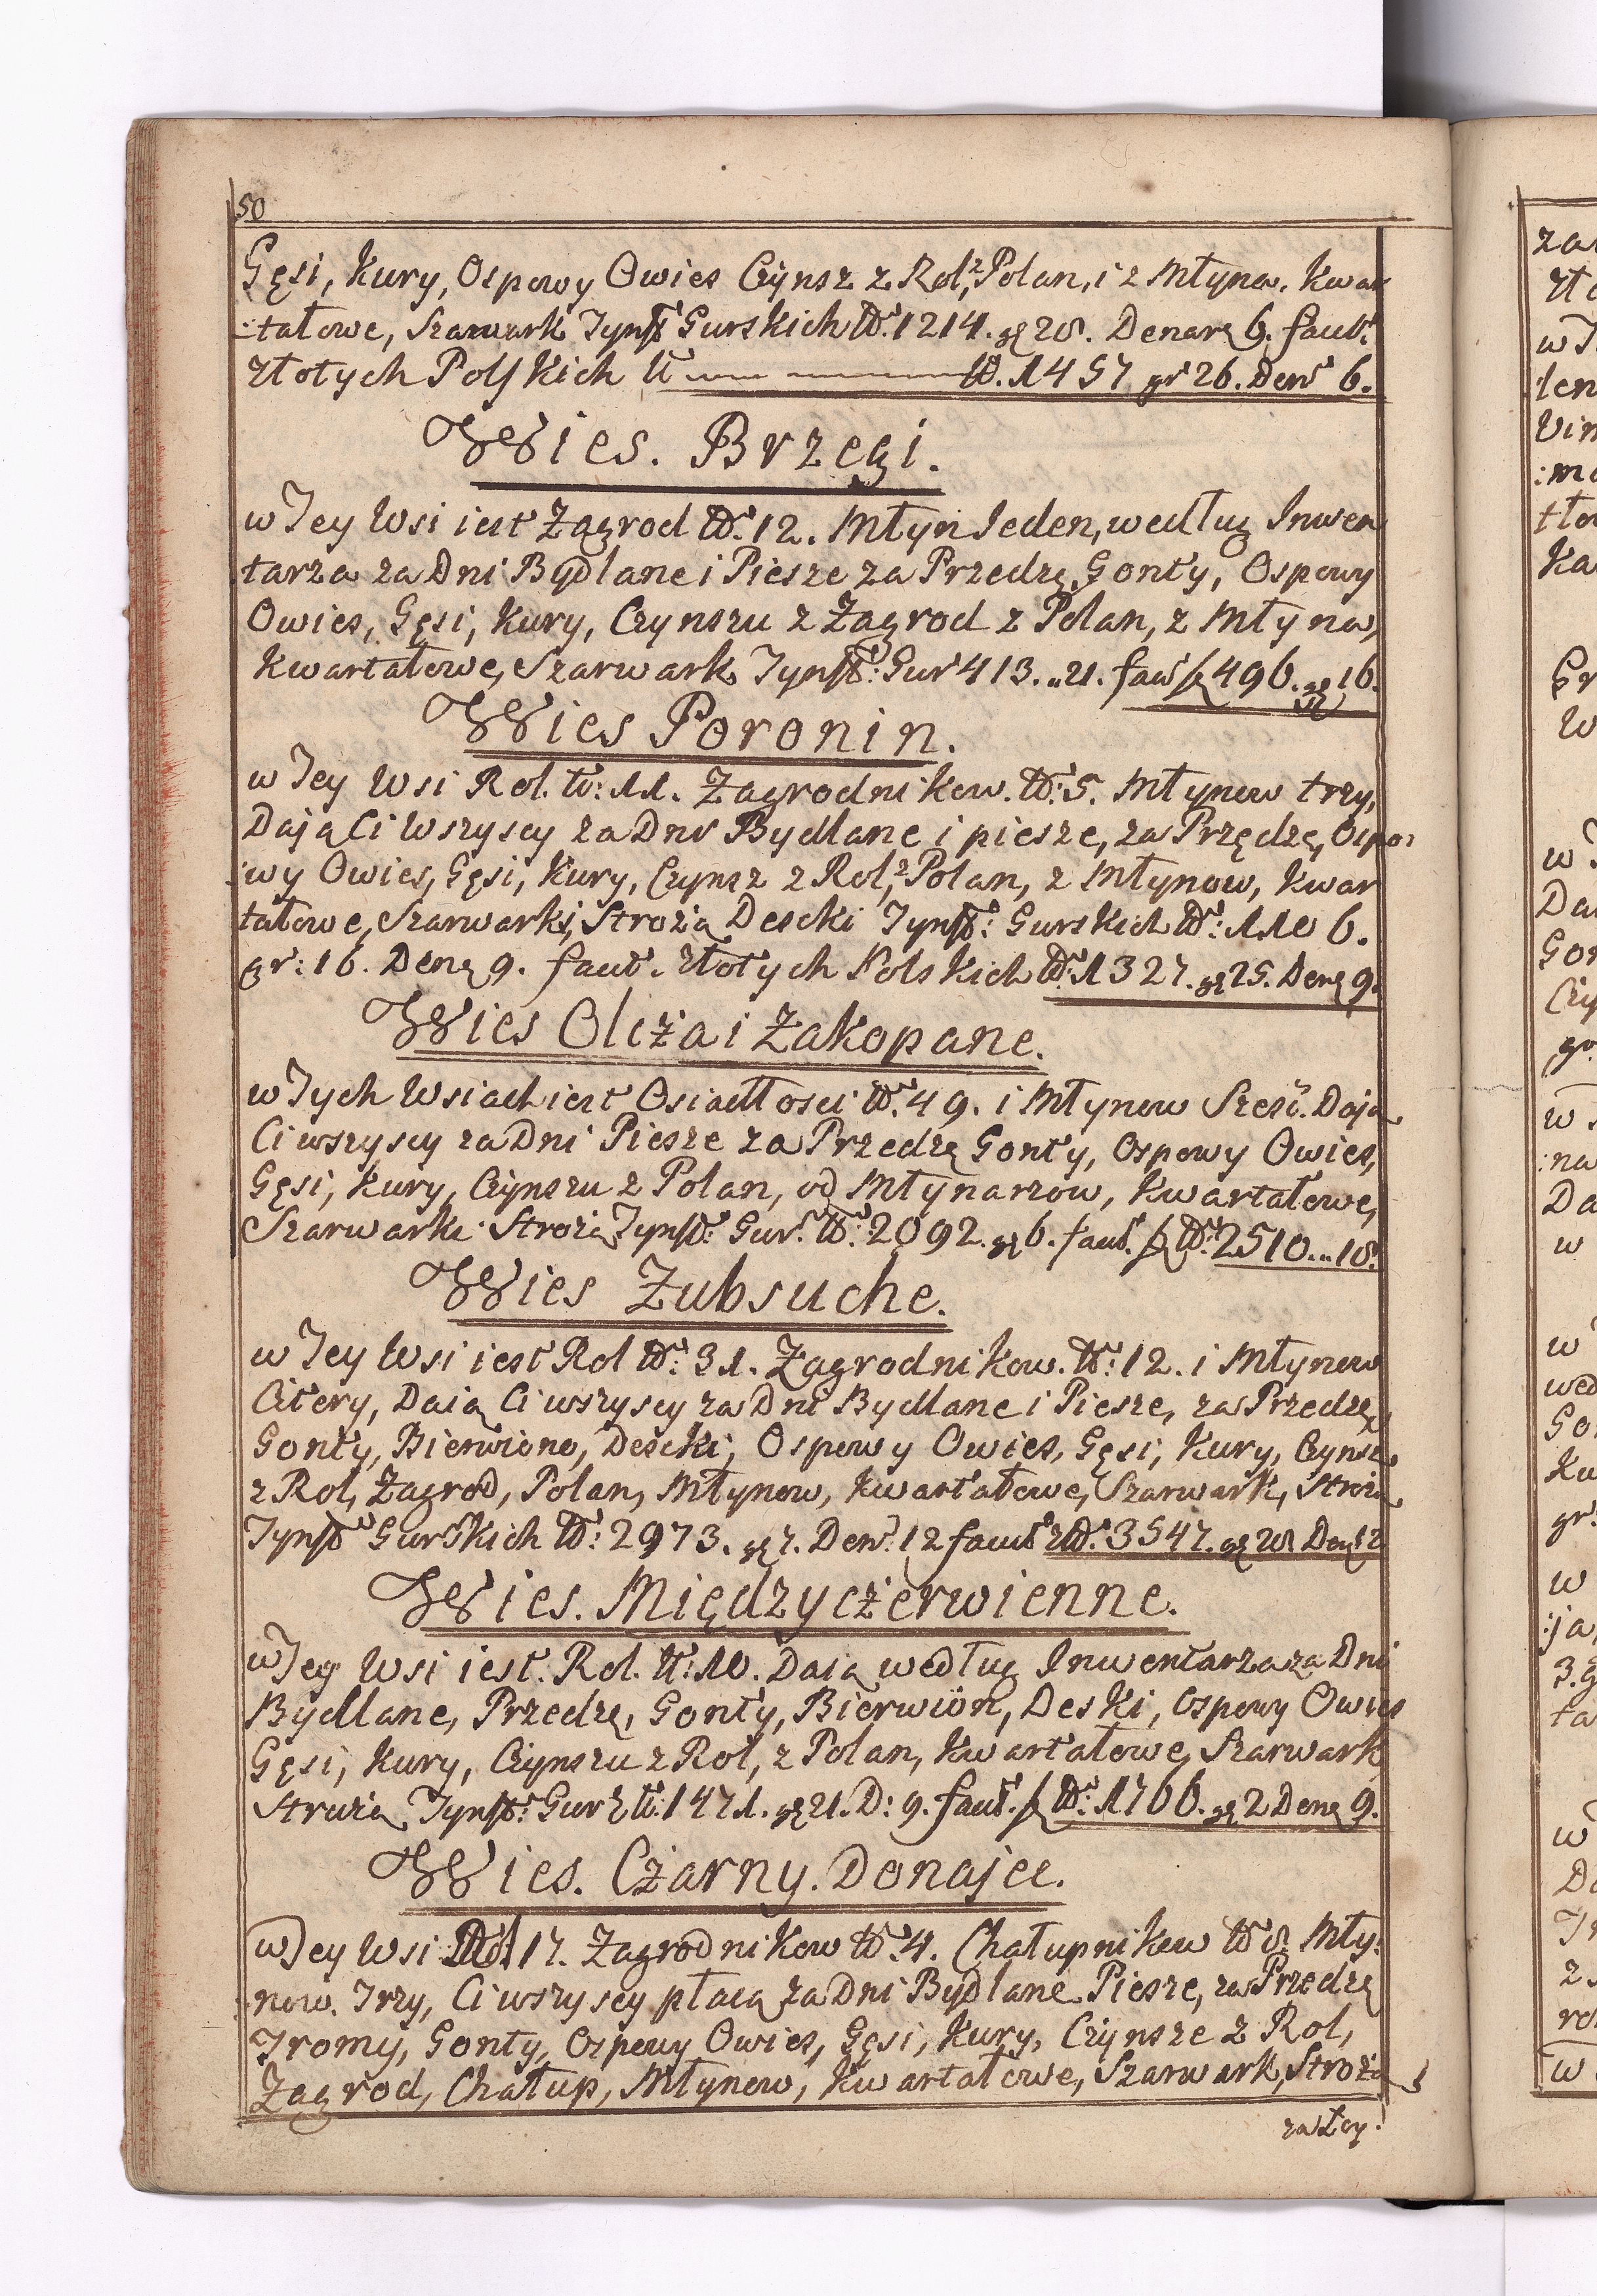 50
Gęsi, Kury, Ospowy Owies Czynsz z Rol, z Polan, i z Młyna. Kwar
:tałowe, Szarwark Tynff Gurskich No. 1214. gr 28. Denarę 6. facit
złotych Polskich No. 1457 gr 26. Den 6.
Wies. Brzegi.
w Tey Wsi iest Zagrod No. 12. Młyn Jeden, według Inwen
tarza za Dni Bydlane i Piesze za Przedzę, Gonty, Ospowy
Owies, Gęsi, Kury, Czynszu z Zagrod z Polan, z Młyna,
Kwartałowe, Szarwark Tynff: Gur 413. „ 21. faci 496. gr 16.
Wies Poronin.
w Tey Wsi Rol. No: 11. Zagrodnikow. No: 5. Młynow trzy,
Dają Ci Wszyscy za Dni Bydlane i piesze, za Przędzę, Ospo:
:wy Owies, Gęsi, Kury, Czynsz z Rol, z Polan, z Młynow, Kwar
tałowe, Szarwarki, Stroża Descki Tynff: Gurskich No: 1106.
gr: 16. Denę 9. facit. złotych Polskich No. 1327. gr 25. Denę 9.
Wies Olcza i Zakopane.
w Tych Wsiach iest Osiadłosci No. 49. i Młynow Szesć. Daja
Ci wszyscy za Dni Piesze za Przedzę Gonty, Ospowy Owies,
Gęsi, Kury, Czynszu z Polan, od Młynarzow, Kwartałowe,
Szarwark. Stroża Tynff: Gur. No: 2092. gr 6. facit. No: 2510...18.
Wies Zubsuche.
w Tey Wsi iest Rol No: 31. Zagrodnikow. No: 12. i Młynow
Cztery, Daią Ci wszyscy za Dni Bydlane i Piesze, za Przedzę
Gonty, Bierwiono, Descki, Ospowy Owies, Gęsi, Kury, Czynsz
z Rol, Zagrod, Polan, Młynow, Kwartałowe, Szarwark, Stroża
Tynff Gurskich No: 2973. gr 7. Den. 12 facit No. 3547. gr 28 Den 12
Wies. Międzyczerwienne.
w Tey Wsi iest. Rol. No: 10. Daią według Inwentarza za Dni
Bydlane, Przedzę, Gonty, Bierwion, Deski, Ospowy Owies
Gęsi, Kury, Czynszu z Rol, z Polan, Kwartałowe, Szarwark
Struża Tynff: Gur No: 1471. gr 21. D: 9. facit. No: 1766. gr 2 Denę 9.
Wies. Czarny. Donajec.
w Tey Wsi Rol 17. Zagrodnikow No. 4. Chałupnikow No 8. Mły:
:now. Trzy, Ci wszyscy płacą za Dni Bydlane Piesze, za Przedzę
Tromy, Gonty, Ospowy Owies, Gęsi, Kury, Czynsze z Rol,
Zagrod, Chałup, Młynow, Kwartałowe, Szarwark, Stroża